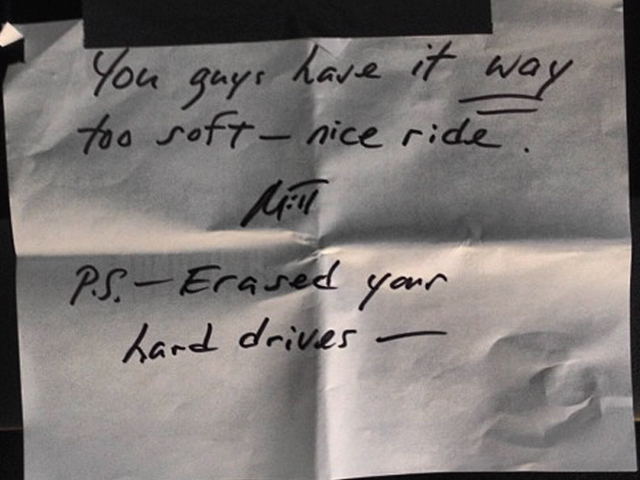 You guys have it way
too soft — nice ride.
Mitt
P.S. — Erased your
hard drives —